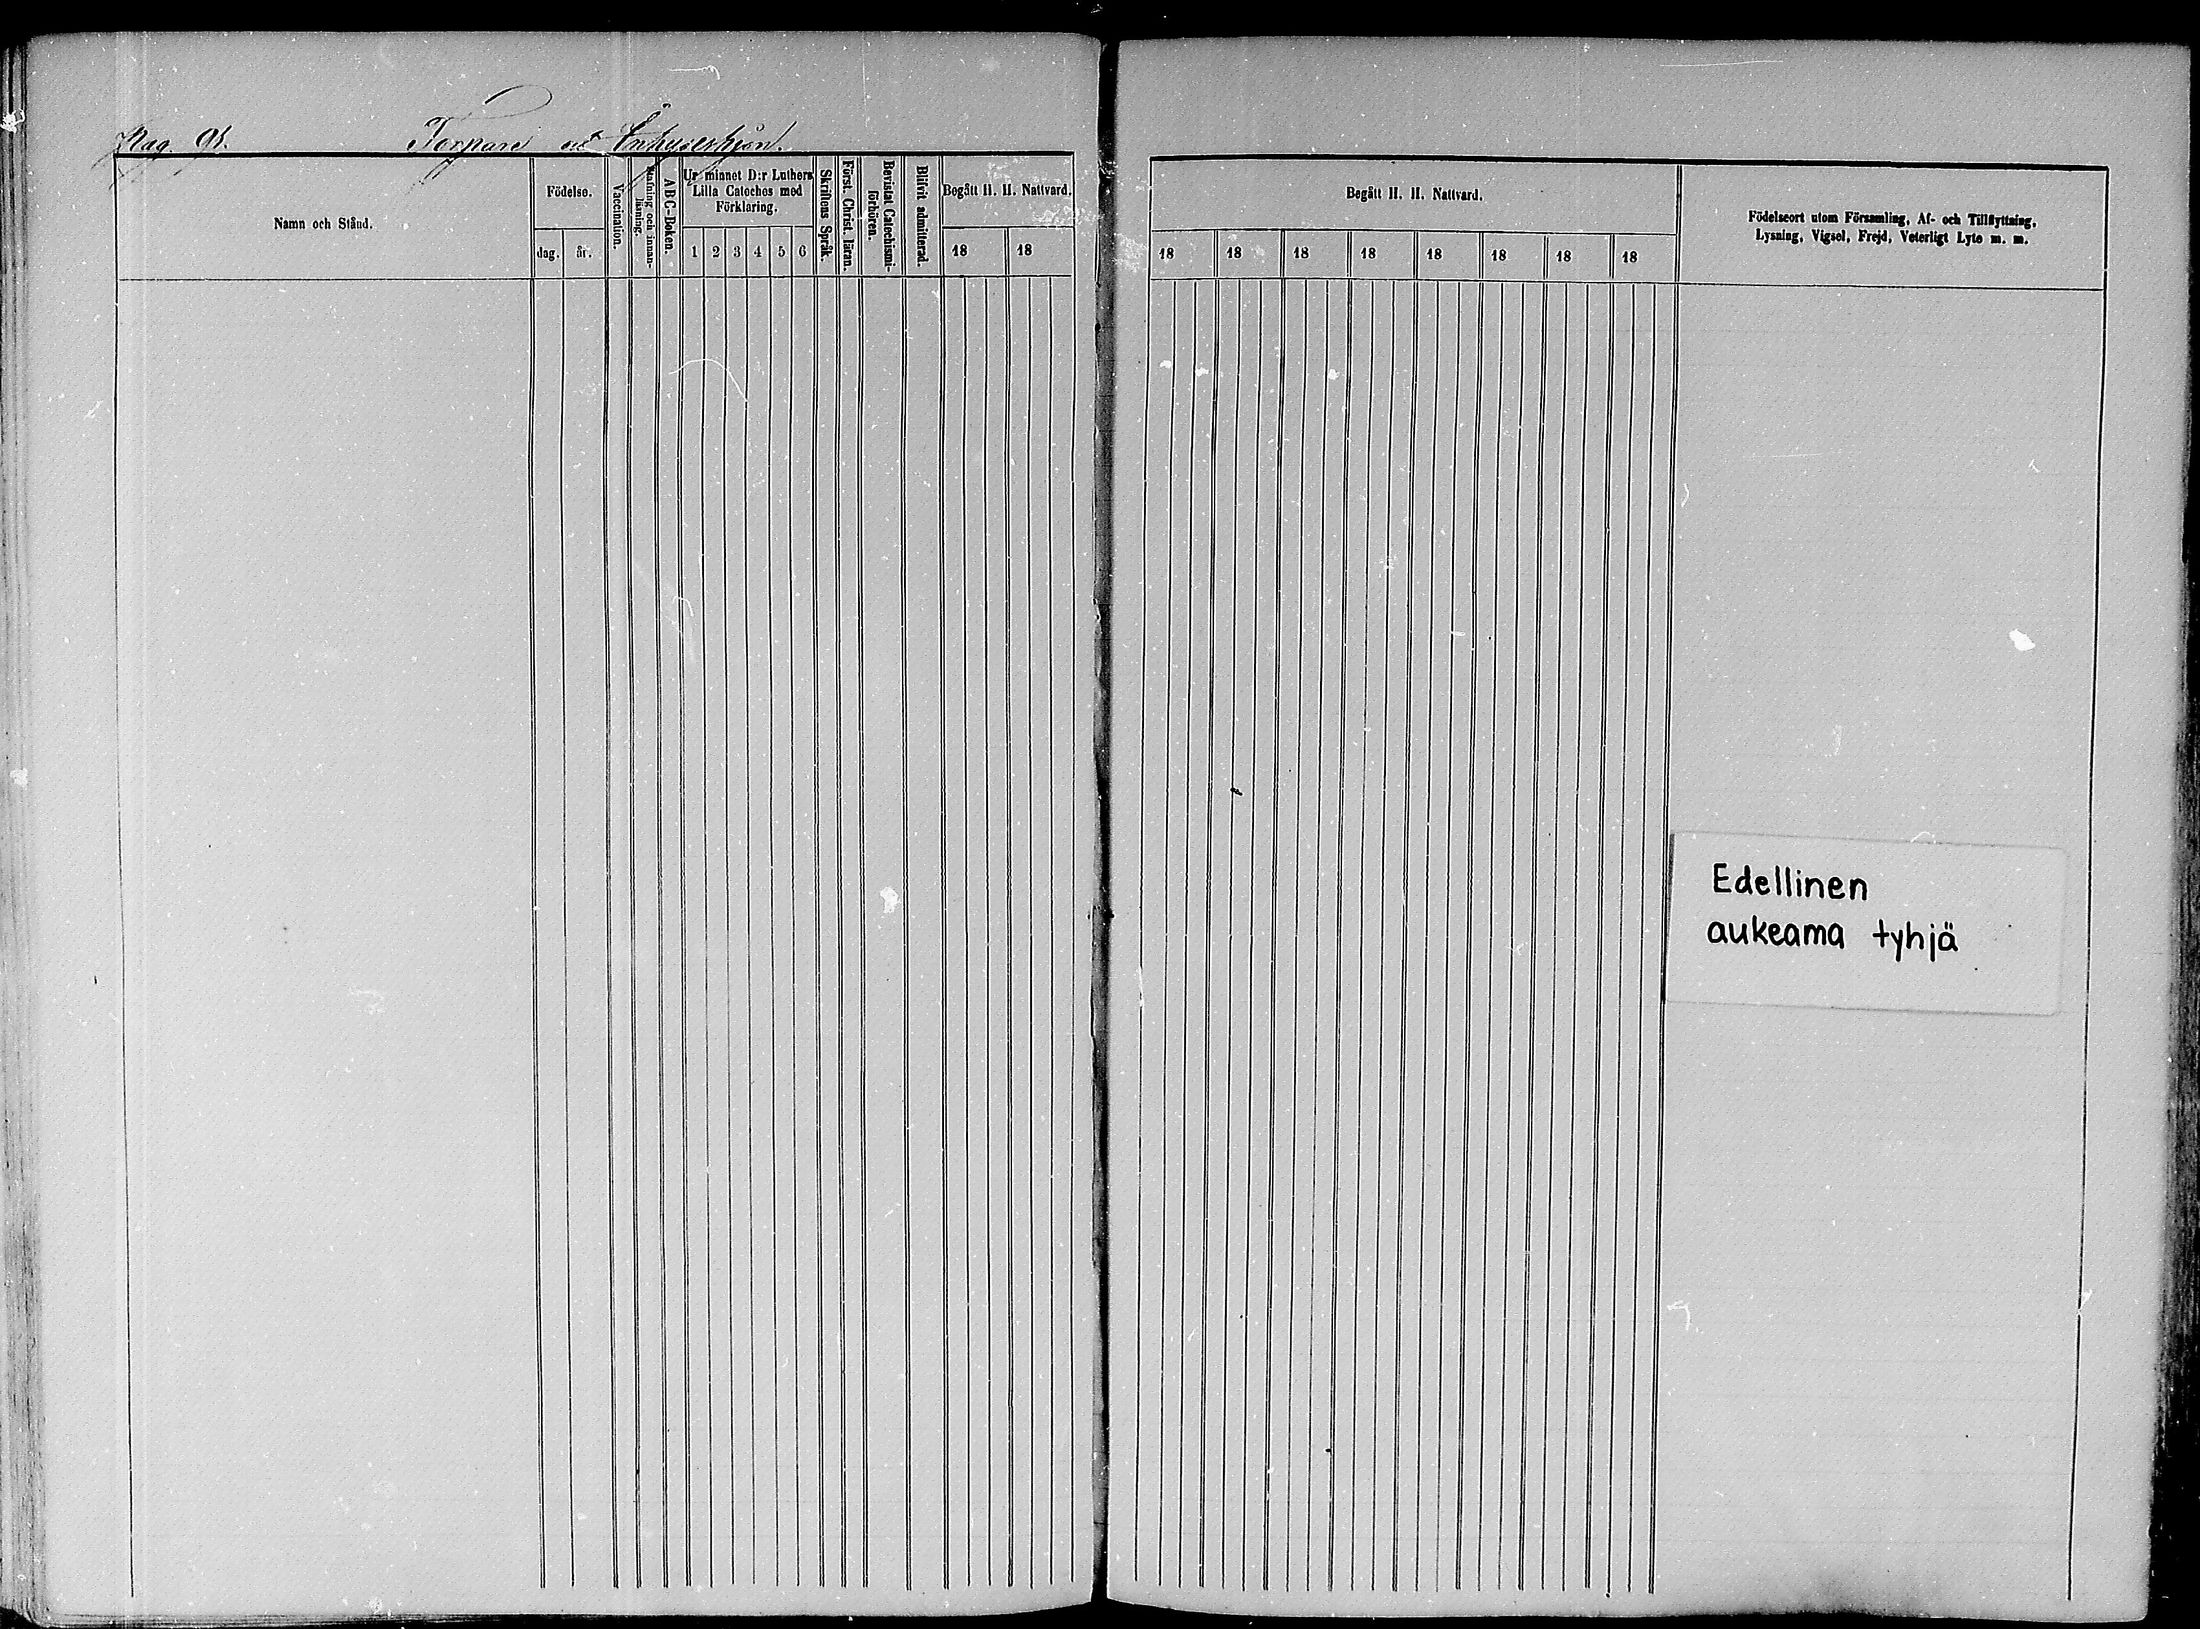 Pag. 91.
Torpare och Inhyseshjon.
Namn och Stånd.
Födelse.
dag.
år.
Vaccination.
Stafning och innan-
läsning.
ABC-Boken.
Ur minnet D:r Luthers
Lilla Cateches med
Förklaring.
1 2 3 4 5 6
Skriftens Språk.
Först. Christ. läran.
Bevistat Catechismi-
förhören.
Blifvit admitterad.
Begått H. H. Nattvard.
18 18
Begått H. H. Nattvard.
18 18 18 18 18 18 18 18
Födelseort utom Församling, Af- och Tillflyttning,
Lysning, Vigsel, Frejd, Veterligt Lyte m. m.
Edellinen
aukeama tyhjä